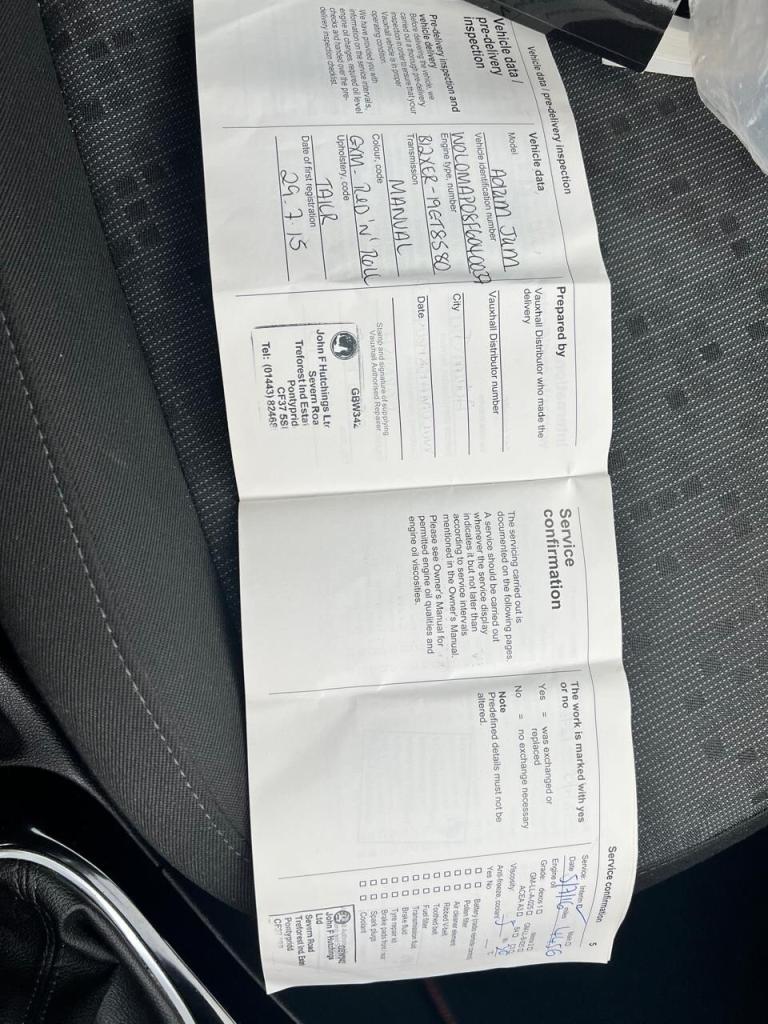 Vehicle data / pre-delivery inspection
Vehicle data /
pre-delivery
inspection
Pre-delivery inspection and
vehicle delivery
Before delivering the vehicle, we
carried out a thorough pre-delivery
inspection in order to ensure that your
Vauxhall vehicle is in proper
operating condition.
We have provided you with
information on the service intervals,
engine oil changes, required oil level
checks and handed over the pre-
delivery inspection checklist.
Vehicle data
Model
Adam Jam
Vehicle identification number
Engine type, number
B12XER-19ET8580
Transmission
MANUAL
Colour, code
GXM- RED 'N' Roll
Upholstery, code
TAKR
Date of first registration
29.7.15
Prepared by
Vauxhall Distributor who made the
delivery
Vauxhall Distributor number
City
Date
Stamp and signature of supplying
Vauxhall Authorised Repairer
GBW342
John F Hutchings Lt
Severn Roa
Treforest Ind Esta
Pontyprid
CF37 5S
Tel: (01443) 8246
Service
confirmation
The servicing carried out is
documented on the following pages.
A service should be carried out
whenever the service display
indicates it but not later than
according to service intervals
mentioned in the Owner's Manual.
Please see Owner's Manual for
permitted engine oil qualities and
engine oil viscosities.
The work is marked with yes
or no
Yes = was exchanged or
replaced
No = no exchange necessary
Note
Predefined details must not be
altered.
Service confirmation 5
Service: Interim
Date 5/7/16
Engine oil
Grade: dexos 1
Viscosity:
Anti-freeze, coolant
Yes No
Pollen filter
Air cleaner element
Ribbed V-belt
Toothed belt
Fuel filter
Transmission fluid
Brake fluid
Tyre repair kit
Spark plugs
Coolant
John F Hutchings
Ltd
Severn Road
Treforest Ind. Estat
Pontypridd